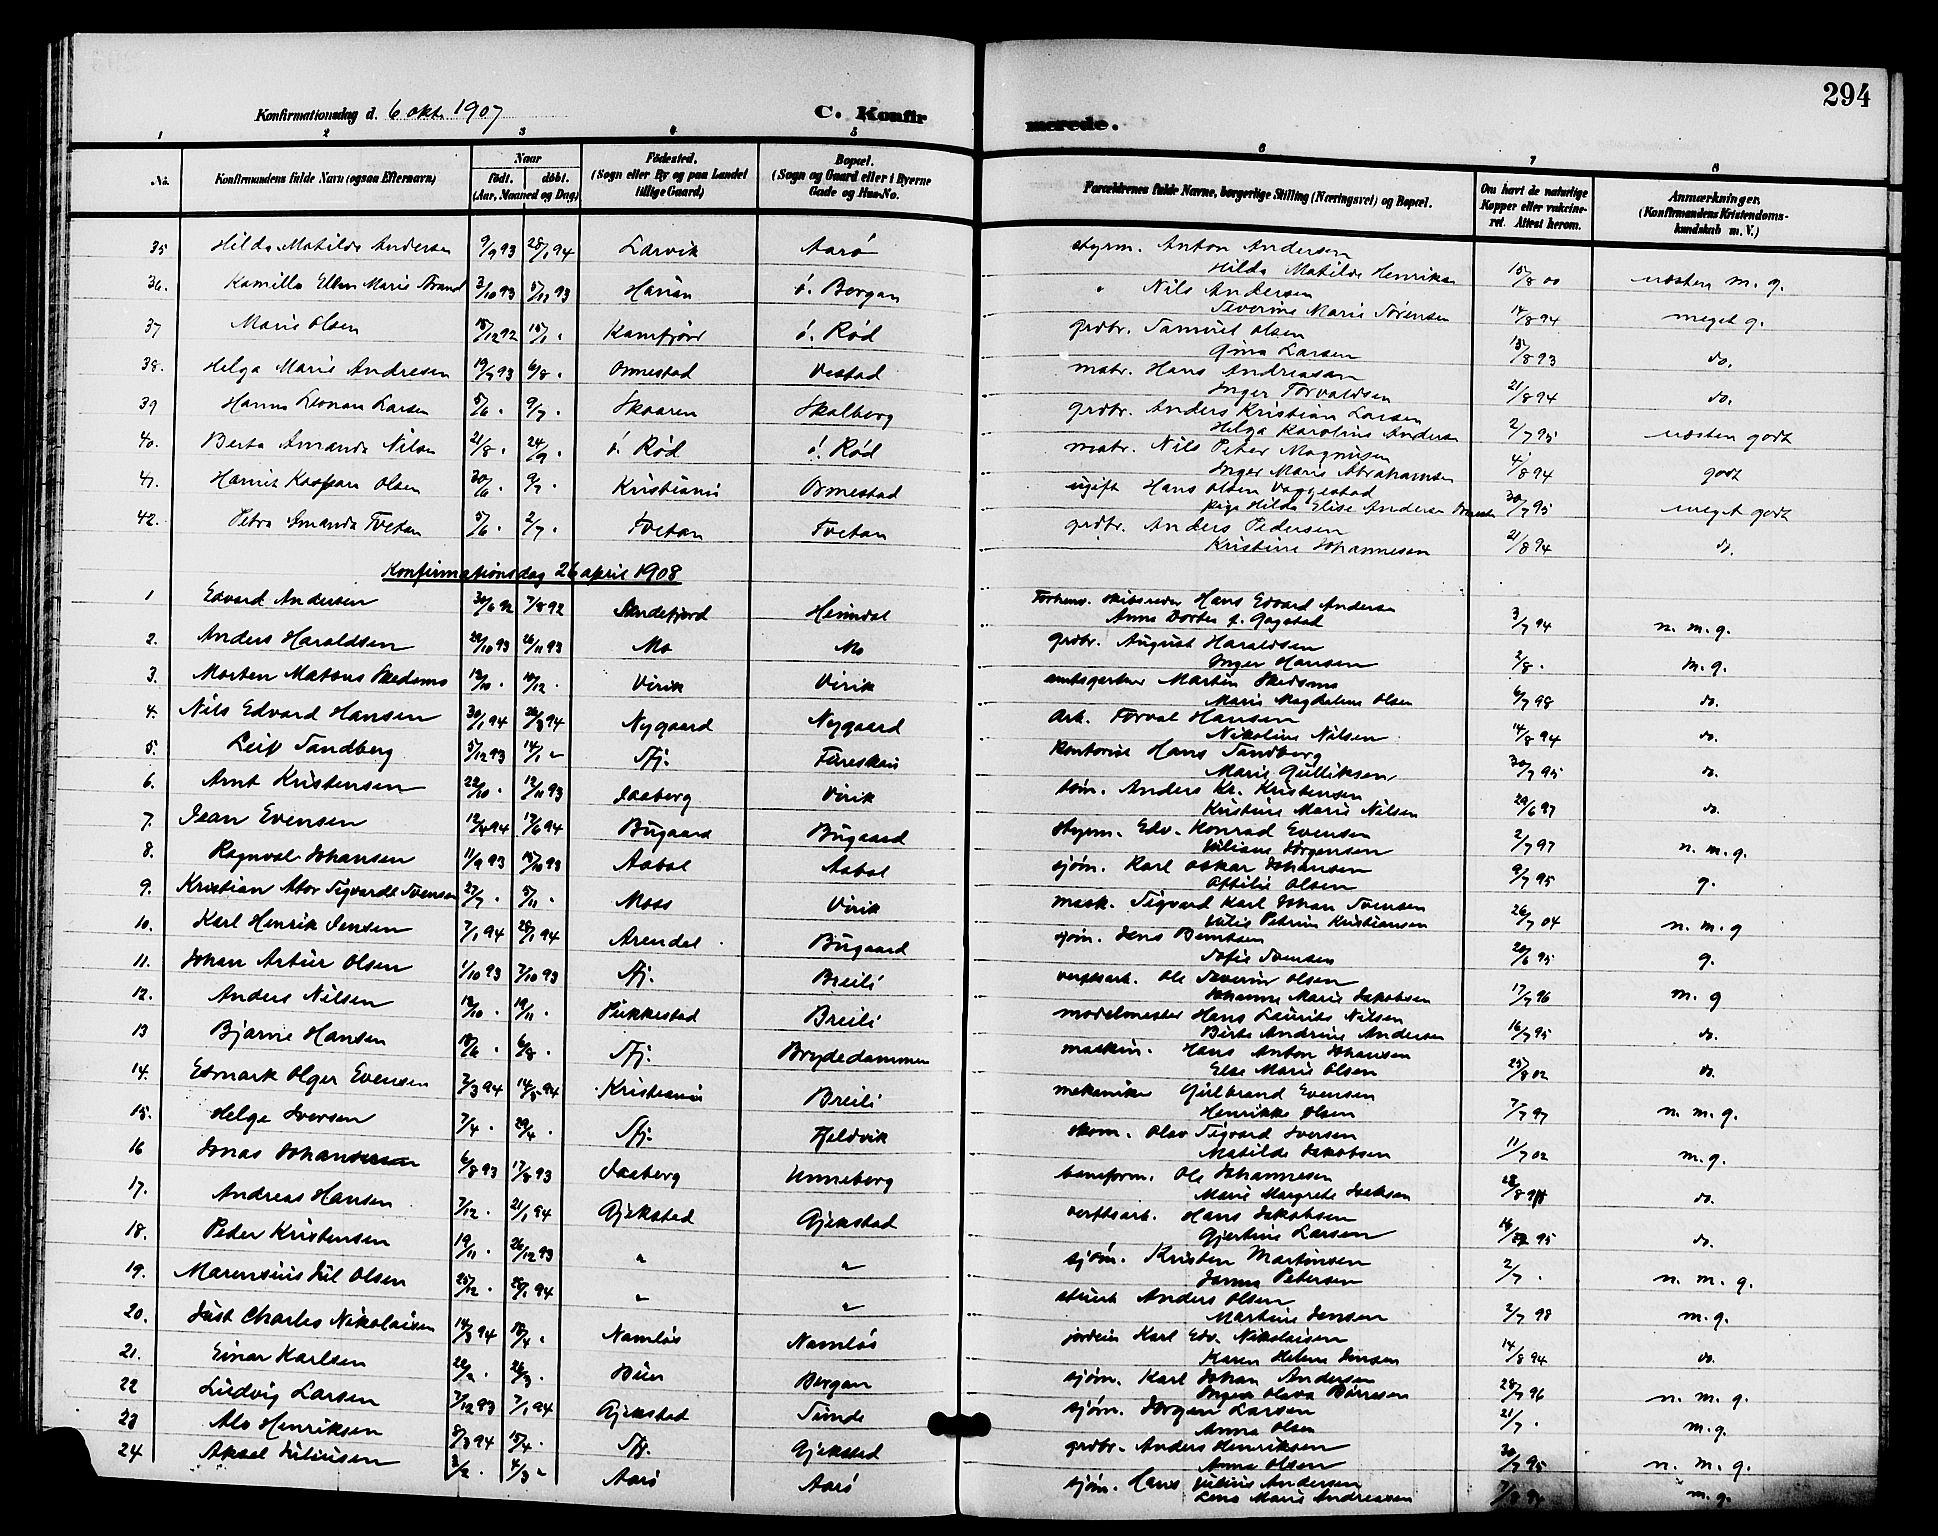 294
Konfirmationsdag d. 6 okt. 1907
C. Konfirmerede.
1 2 3 4 5 6 7 8
No. Konfirmandens fulde Navn (ogsaa Efternavn) Naar født. døbt. (Aar, Maaned og Dag) Fødested. (Sogn eller By og paa Landet tillige Gaard) Bopæl. (Sogn og Gaard eller i Byerne Gade og Hus-No. Forældrenes fulde Navne, borgerlige Stilling (Næringsvei) og Bopæl. Om havt de naturlige Kopper eller vakcineret. Attest herom. Anmærkninger. (Konfirmandens Kristendomskundskab m. V.)
35 Hilda Matilde Andersen 9/9 93 28/1 94 Larvik Aarö styrm. Anton Andersen
Hilda Matilde Henriksen 15/8 00 næsten m. g.
36. Kamilla Ellen Marie Strand 3/10 93 5/11 93 Havan ö. Bergan " Nils Andersen
Severine Marie Sörensen 14/8 94 meget g.
37 Marie Olsen 18/12 92 15/1 . Kamfjord ö. Röd grdbr. Samuel Olsen
Gina Larsen 15/8 93 do.
38. Helga Marie Andresen 19/7 93 6/8 . Ormestad Vestad matr. Hans Andreasen
Inger Torvaldsen 21/8 94 do.
39 Hanna Leonora Larsen 5/6 . 9/7 . Skaaren Skolberg grdbr. Anders Kristian Larsen
Helga Karoline Andersen 2/7 95 næsten godt
40. Berta Amanda Nilsen 21/8 . 24/9 . ö. Röd ö. Röd matr. Nils Peter Magnusen
Inger Marie Abrahamsen 4/8 94 godt
41. Harriet Kaspara Olsen 30/6 . 9/7 . Kristiania Ormestad ugift Hans Olsen Vaggestad
pige Hilda Elise Andersen 30/7 95 meget godt
42. Petra Amanda Tvetan 5/6 . 2/7 . Tvetan Tvetan grdbr. Anders Pedersen
Kristine Johannesen 21/8 94 do.
Konfirmationsdag 26 april 1908
1 Edvard Andersen 30/6 92 7/8 92 Sandefjord Heimdal Forhenv. skibsreder Hans Edvard Andersen
Anna Dortea f. Gogstad 3/7 94 n. m. g.
2. Anders Haraldsen 22/10 93 26/11 93 Mo Mo grdbr. August Haraldsen
Inger Hansen 2/8 . m. g.
3. Morten Matæus Skedsmo 12/10 . 10/12 . Virik Virik amtsgartner Martin Skedsmo
Marie Magdalene Olsen 6/7 98 do.
4. Nils Edvard Hansen 30/1 94 26/3 94 Nygaard Nygaard arb. Torval Hansen
Nikoline Nilsen 14/8 94 do.
5. Leif Sandberg 5/12 93 14/1 " Sfj. Fureskau kontorist Hans Sandberg
Marie Gulliksen 30/7 95 do.
6. Arnt Kristensen 22/10 . 12/11 93 Skaberg Virik töm. Anders Kr. Kristensen
Kristine Marie Nilsen 29/6 97 do.
7. Isan Evensen 12/4 94 17/6 94 Bugaard Bugaard styrm. Edv. Konrad Evensen
Juliane Jörgensen 2/7 97 n. m. g.
8. Ragnval Johansen 11/9 93 15/10 93 Aabol Aabol sjöm. Karl Oskar Johansen
Ottilie Olsen 9/7 95 g.
9. Kristian Ator Sigvarde Svensen 27/7 . 5/11 . Moss Virik mask. Sigvard Karl Johan Svensen
Julie Petrine Kristiansen 26/7 04 n. m. g
10. Karl Henrik Jensen 7/1 94 28/1 94 Arendal Bugaard sjöm. Jens Berntsen
Sofie Svensen 20/6 95 g.
11. Johan Artur Olsen 1/10 93 7/10 93 Sfj. Breili verftsarb. Ole Severin Olsen
Johanne Marie Jakobsen 17/7 96 m. g
12. Anders Nilsen 12/10 . 19/11 . Pukkestad Breili modelmester Hans Laurits Nilsen
Berte Andrine Andersen 16/7 95 do.
13 Bjarne Hansen 18/6 . 6/8 . Sfj. Brydedammen maskin. Hans Anton Johansen
Else Marie Olsen 25/8 02 do.
14. Esmark Olger Evensen 7/3 94 14/5 94 Kristiania Breili mekaniker Gulbrand Evensen
Henrikke Olsen 7/7 97 n. m. g.
15. Helge Iversen 7/4 . 29/4 . Sfj. Fjeldvik skom. Olav Sigvard Iversen
Matilde Jakobsen 11/7 02 m. g.
16 Jonas Johansen 6/8 93 17/8 93 Skaberg Unneberg baneform. Ole Johannesen
Marie Margrete Isaksen do.
17. Andreas Hansen 7/12 . 21/1 94 Gjekstad Gjekstad verftsarb. Hans Jakobsen
Gjertine Larsen do.
18. Peder Kristensen 19/11 . 26/12 93 " " sjöm. Kristen Martinsen
Hanna Petersen 2/7 . n. m. g.
19. Marensius Jul Olsen 25/12 . 28/1 94 " " stuert Anders Olsen
Martine Jensen 2/7 98 m. g.
20. Just Charles Nikolaisen 14/3 94 15/4 . Namlös Namlös jordeier Karl Edv. Nikolaisen
Karen Helene Jensen 14/8 94 do.
21. Einar Karlsen 22/2 . 26/3 . Buer Bergan sjöm. Karl Johan Andersen
Inger Olava Börresen 28/7 96 n. m. g.
22 Ludvig Larsen 7/12 93 7/1 94 Gjekstad Sunde sjöm. Jörgen Larsen
Anna Olsen 21/7 . m. g.
23 Alv Henriksen 8/3 94 15/4 . Sfj. Gjekstad grdbr. Anders Henriksen
Anna Olsen 30/7 95 n. m. g.
24 Aksel Juliusen 2/2 . 4/3 " Aarö Aarö sjöm. Hans Julius Andersen
Lena Marie Andreasen m. g.